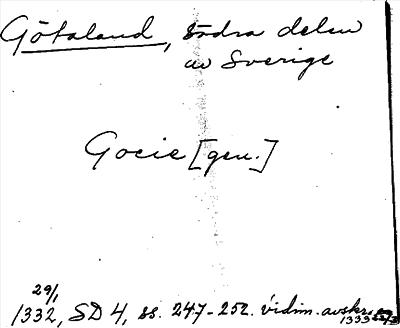 Götaland, södra delen
av Sverige
Gocie [gen.]
29/1
1332, SD 4, ss. 247-252. vidim. avskr.
1333